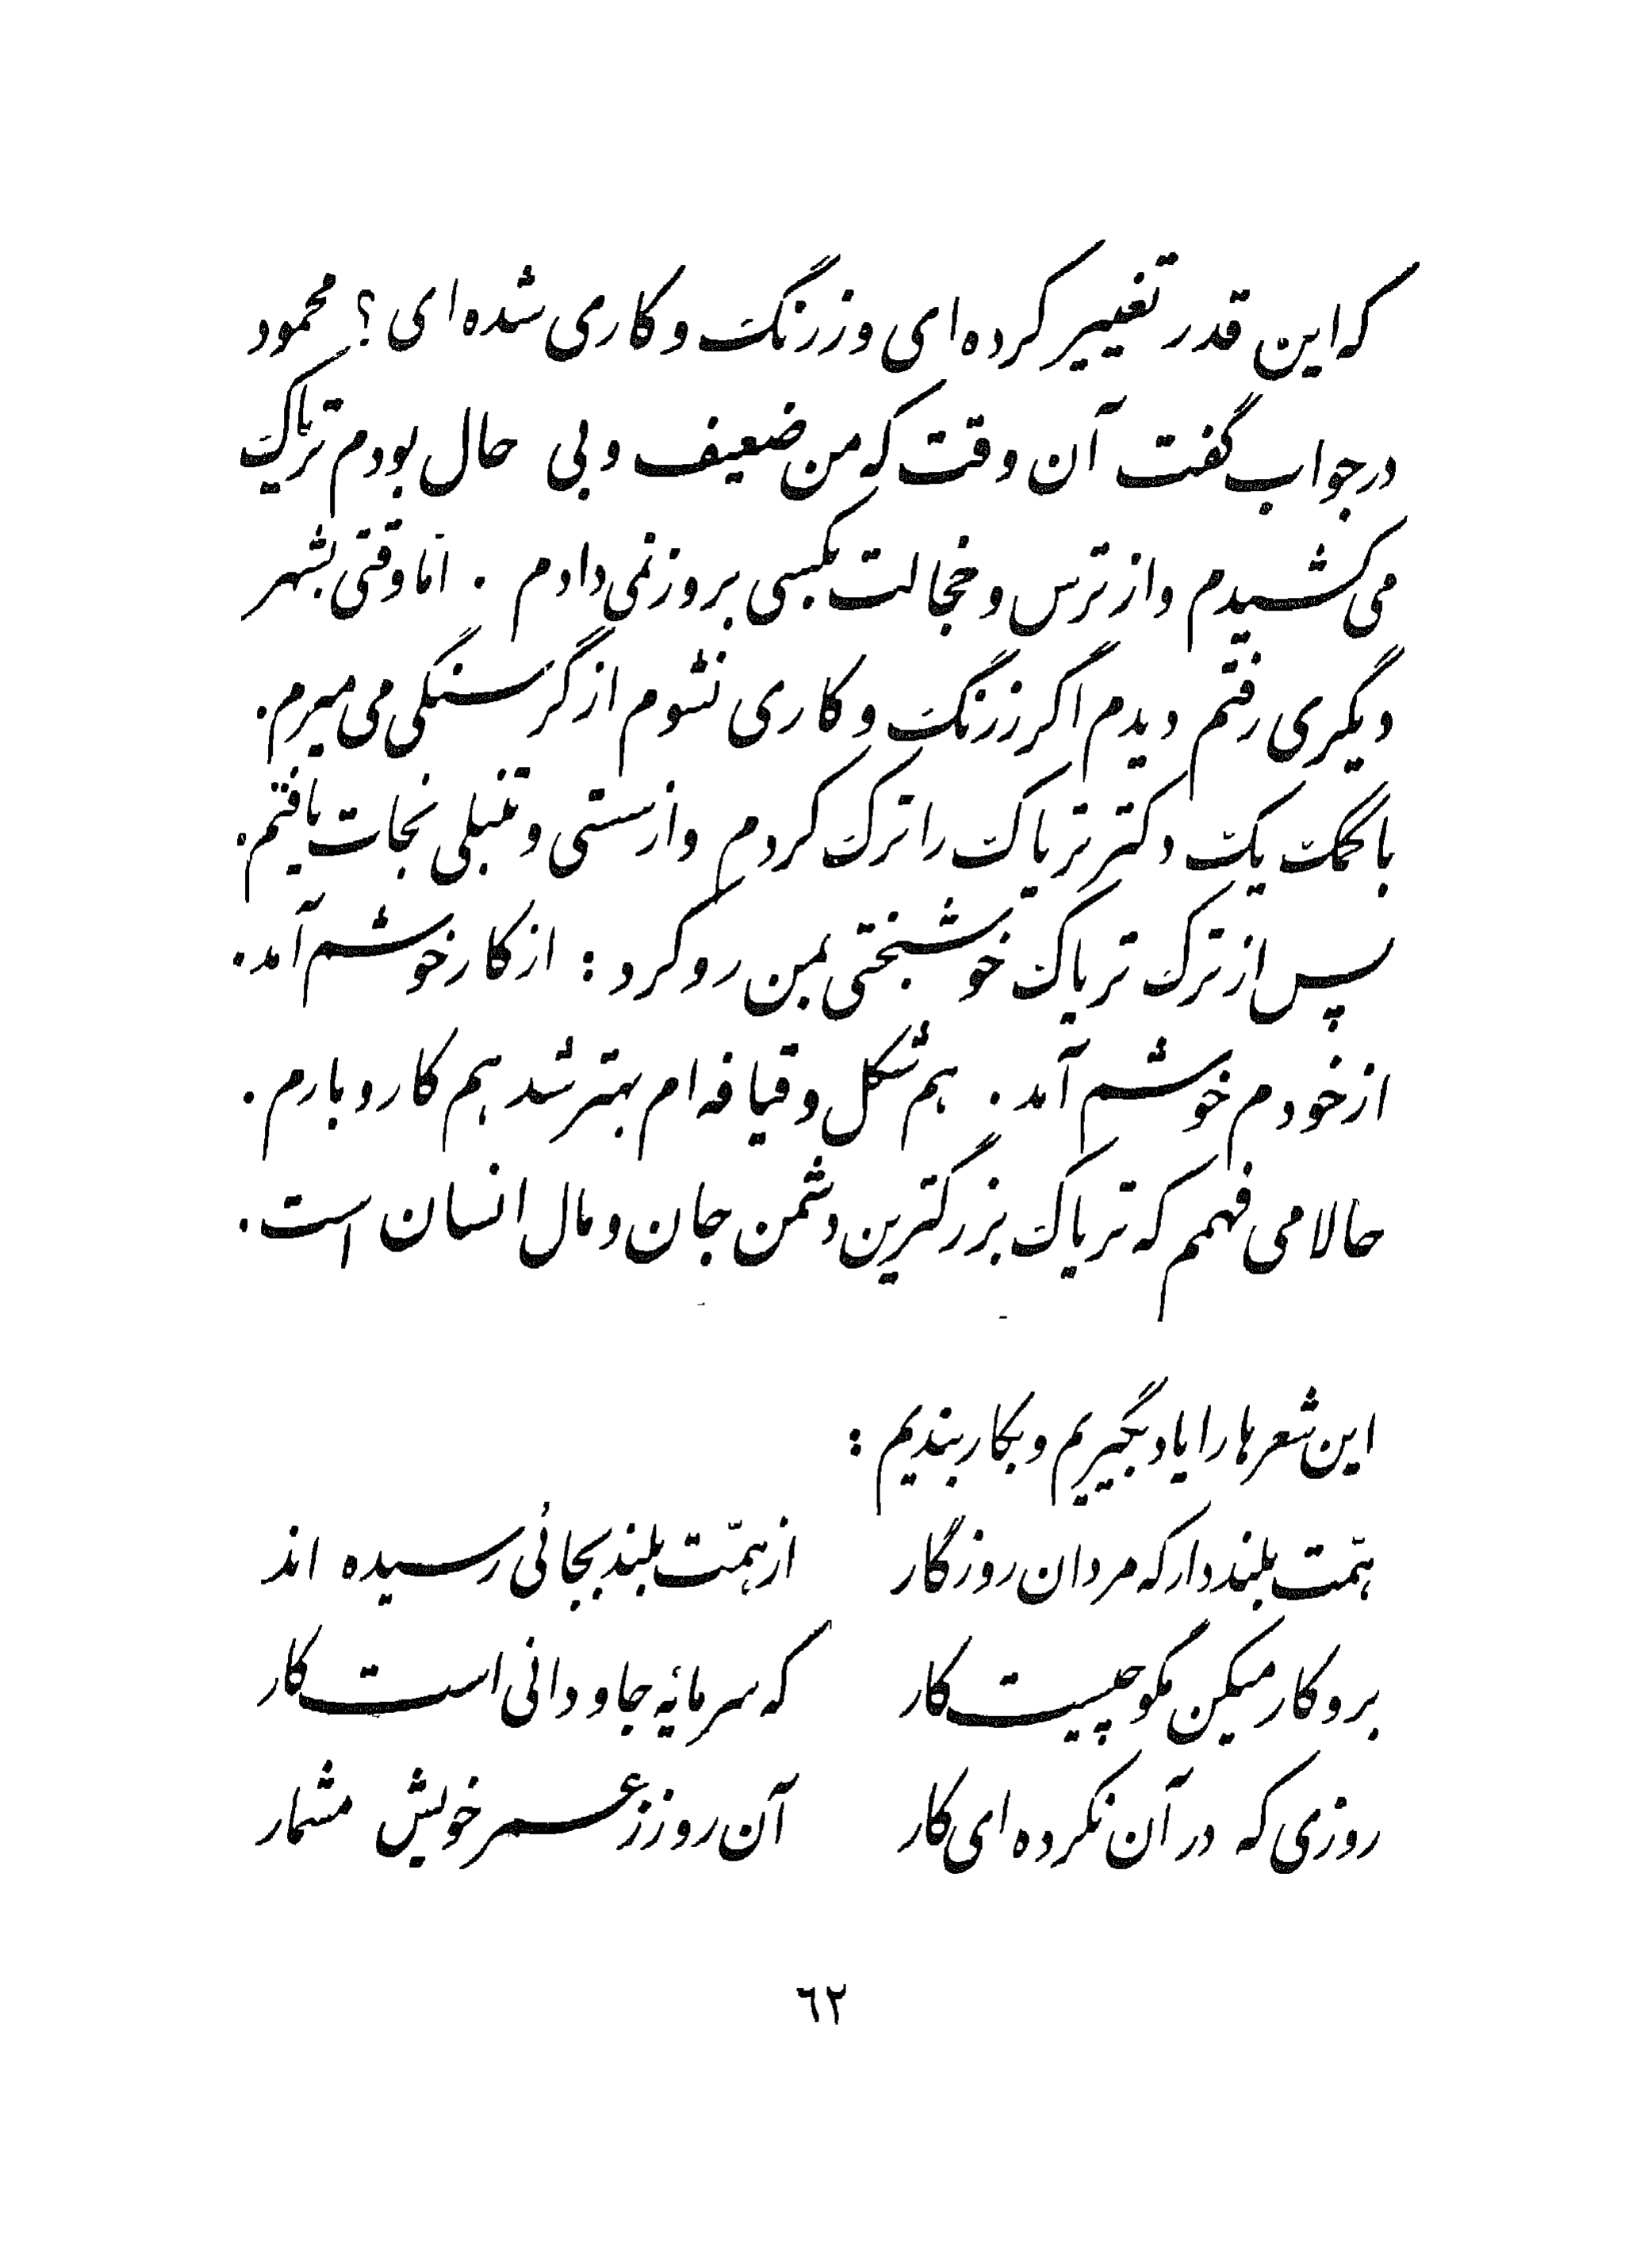 که این قدر تغییر کرده ای و زرنگ و کاری شده ای ؟ محمود
در جواب گفت آن وقت که من ضعیف و بی حال بودم تریاک
می کشیدم و از ترس و خجالت بکسی بروز نمی دادم . امّا وقتی بشهر
دیگری رفتم دیدم اگر زرنگ و کاری نشوم از گرسنگی می میرم .
با کمک یک دکتر تریاک را ترک کردم و از سستی و تنبلی نجات یافتم .
پس از ترک تریاک خوشبختی بمن رو کرد : از کار خوشم آمد .
از خودم خوشم آمد . هم شکل و قیافه ام بهتر شد هم کار و بارم .
حالا می فهمم که تریاک بزرگترین دشمن جان و مال انسان است .
این شعرها را یاد بگیریم و بکار بندیم :
همّت بلند دار که مردان روزگار از همّت بلند بجائی رسیده اند
برو کار میکن مگو چیست کار که سرمایهٔ جاودانی است کار
روزی که در آن نکرده ای کار آن روز ز عمر خویش مشمار
٦٢